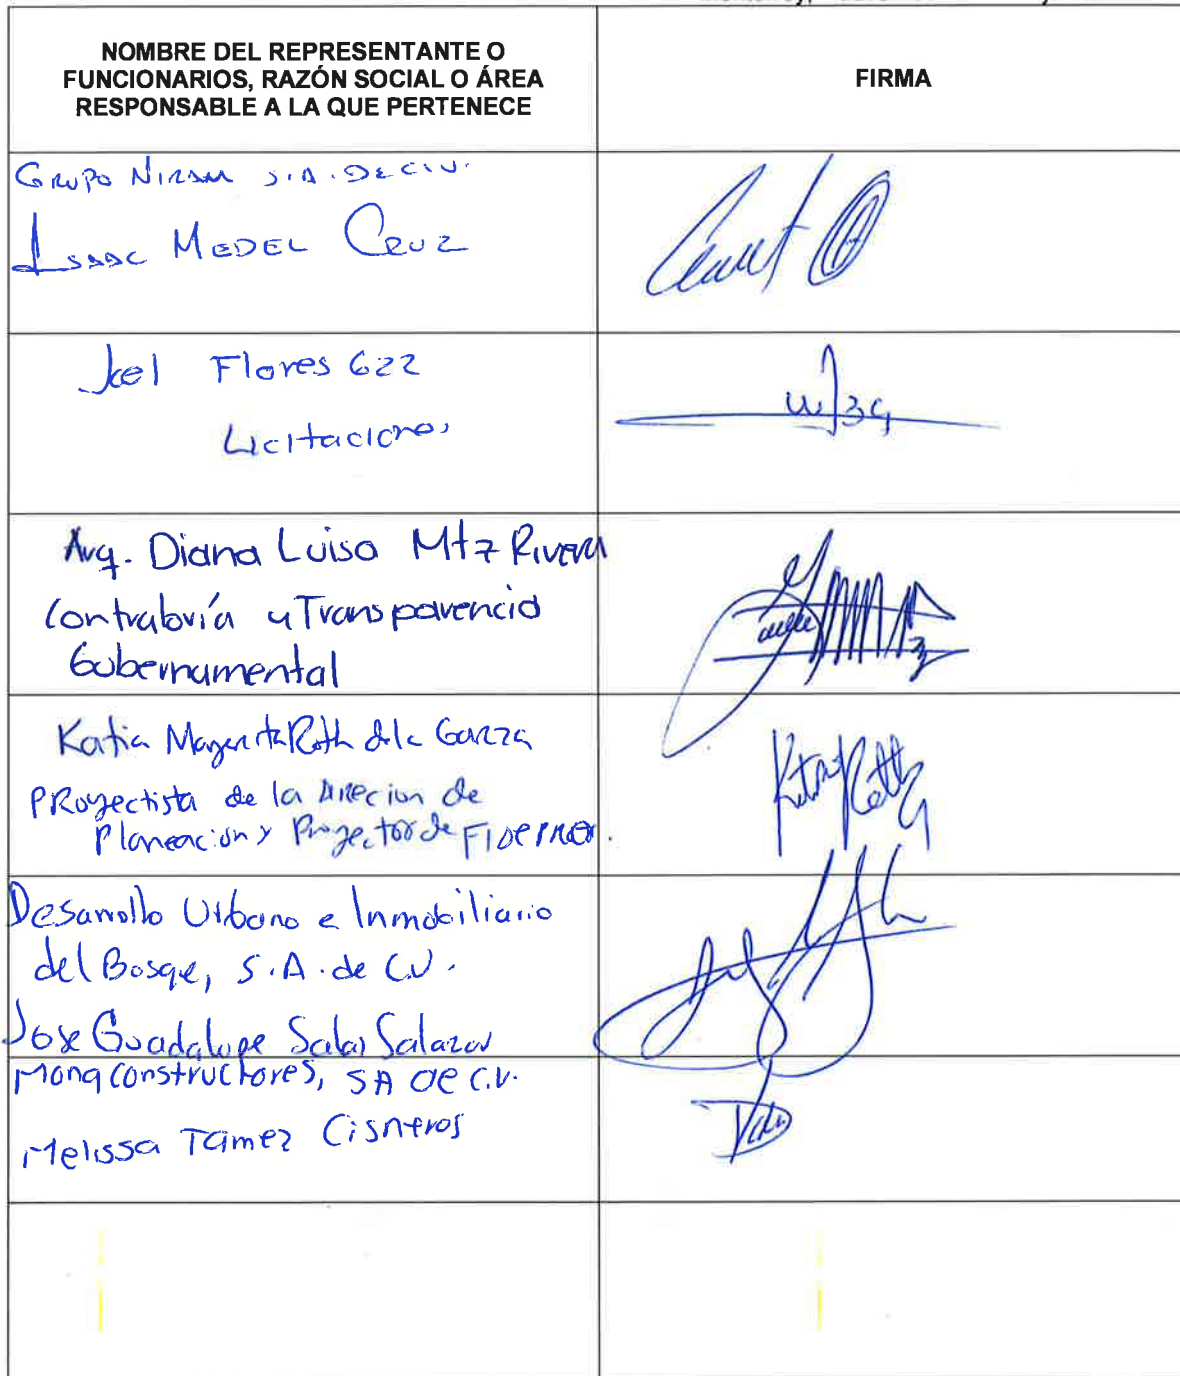 NOMBRE DEL REPRESENTANTE O
FUNCIONARIOS, RAZÓN SOCIAL O ÁREA
RESPONSABLE A LA QUE PERTENECE
FIRMA
GRUPO NIRAM S.A. DE C.V.
ISAAC MEDEL CRUZ
Joel Flores 622
Licitaciones
Arq. Diana Luisa Mtz Rivera
Contraloría y Transparencia
Gubernamental
Katia Roth de la Garza
PRoyectista de la Direcion de
Planeación y Proyectos de
Desarrollo Urbano e Inmobiliario
del Bosque, S.A. de C.V.
Jose Guadalupe Salas Salazar
Monq Constructores, SA de C.V.
Melissa Tamez Cisneros